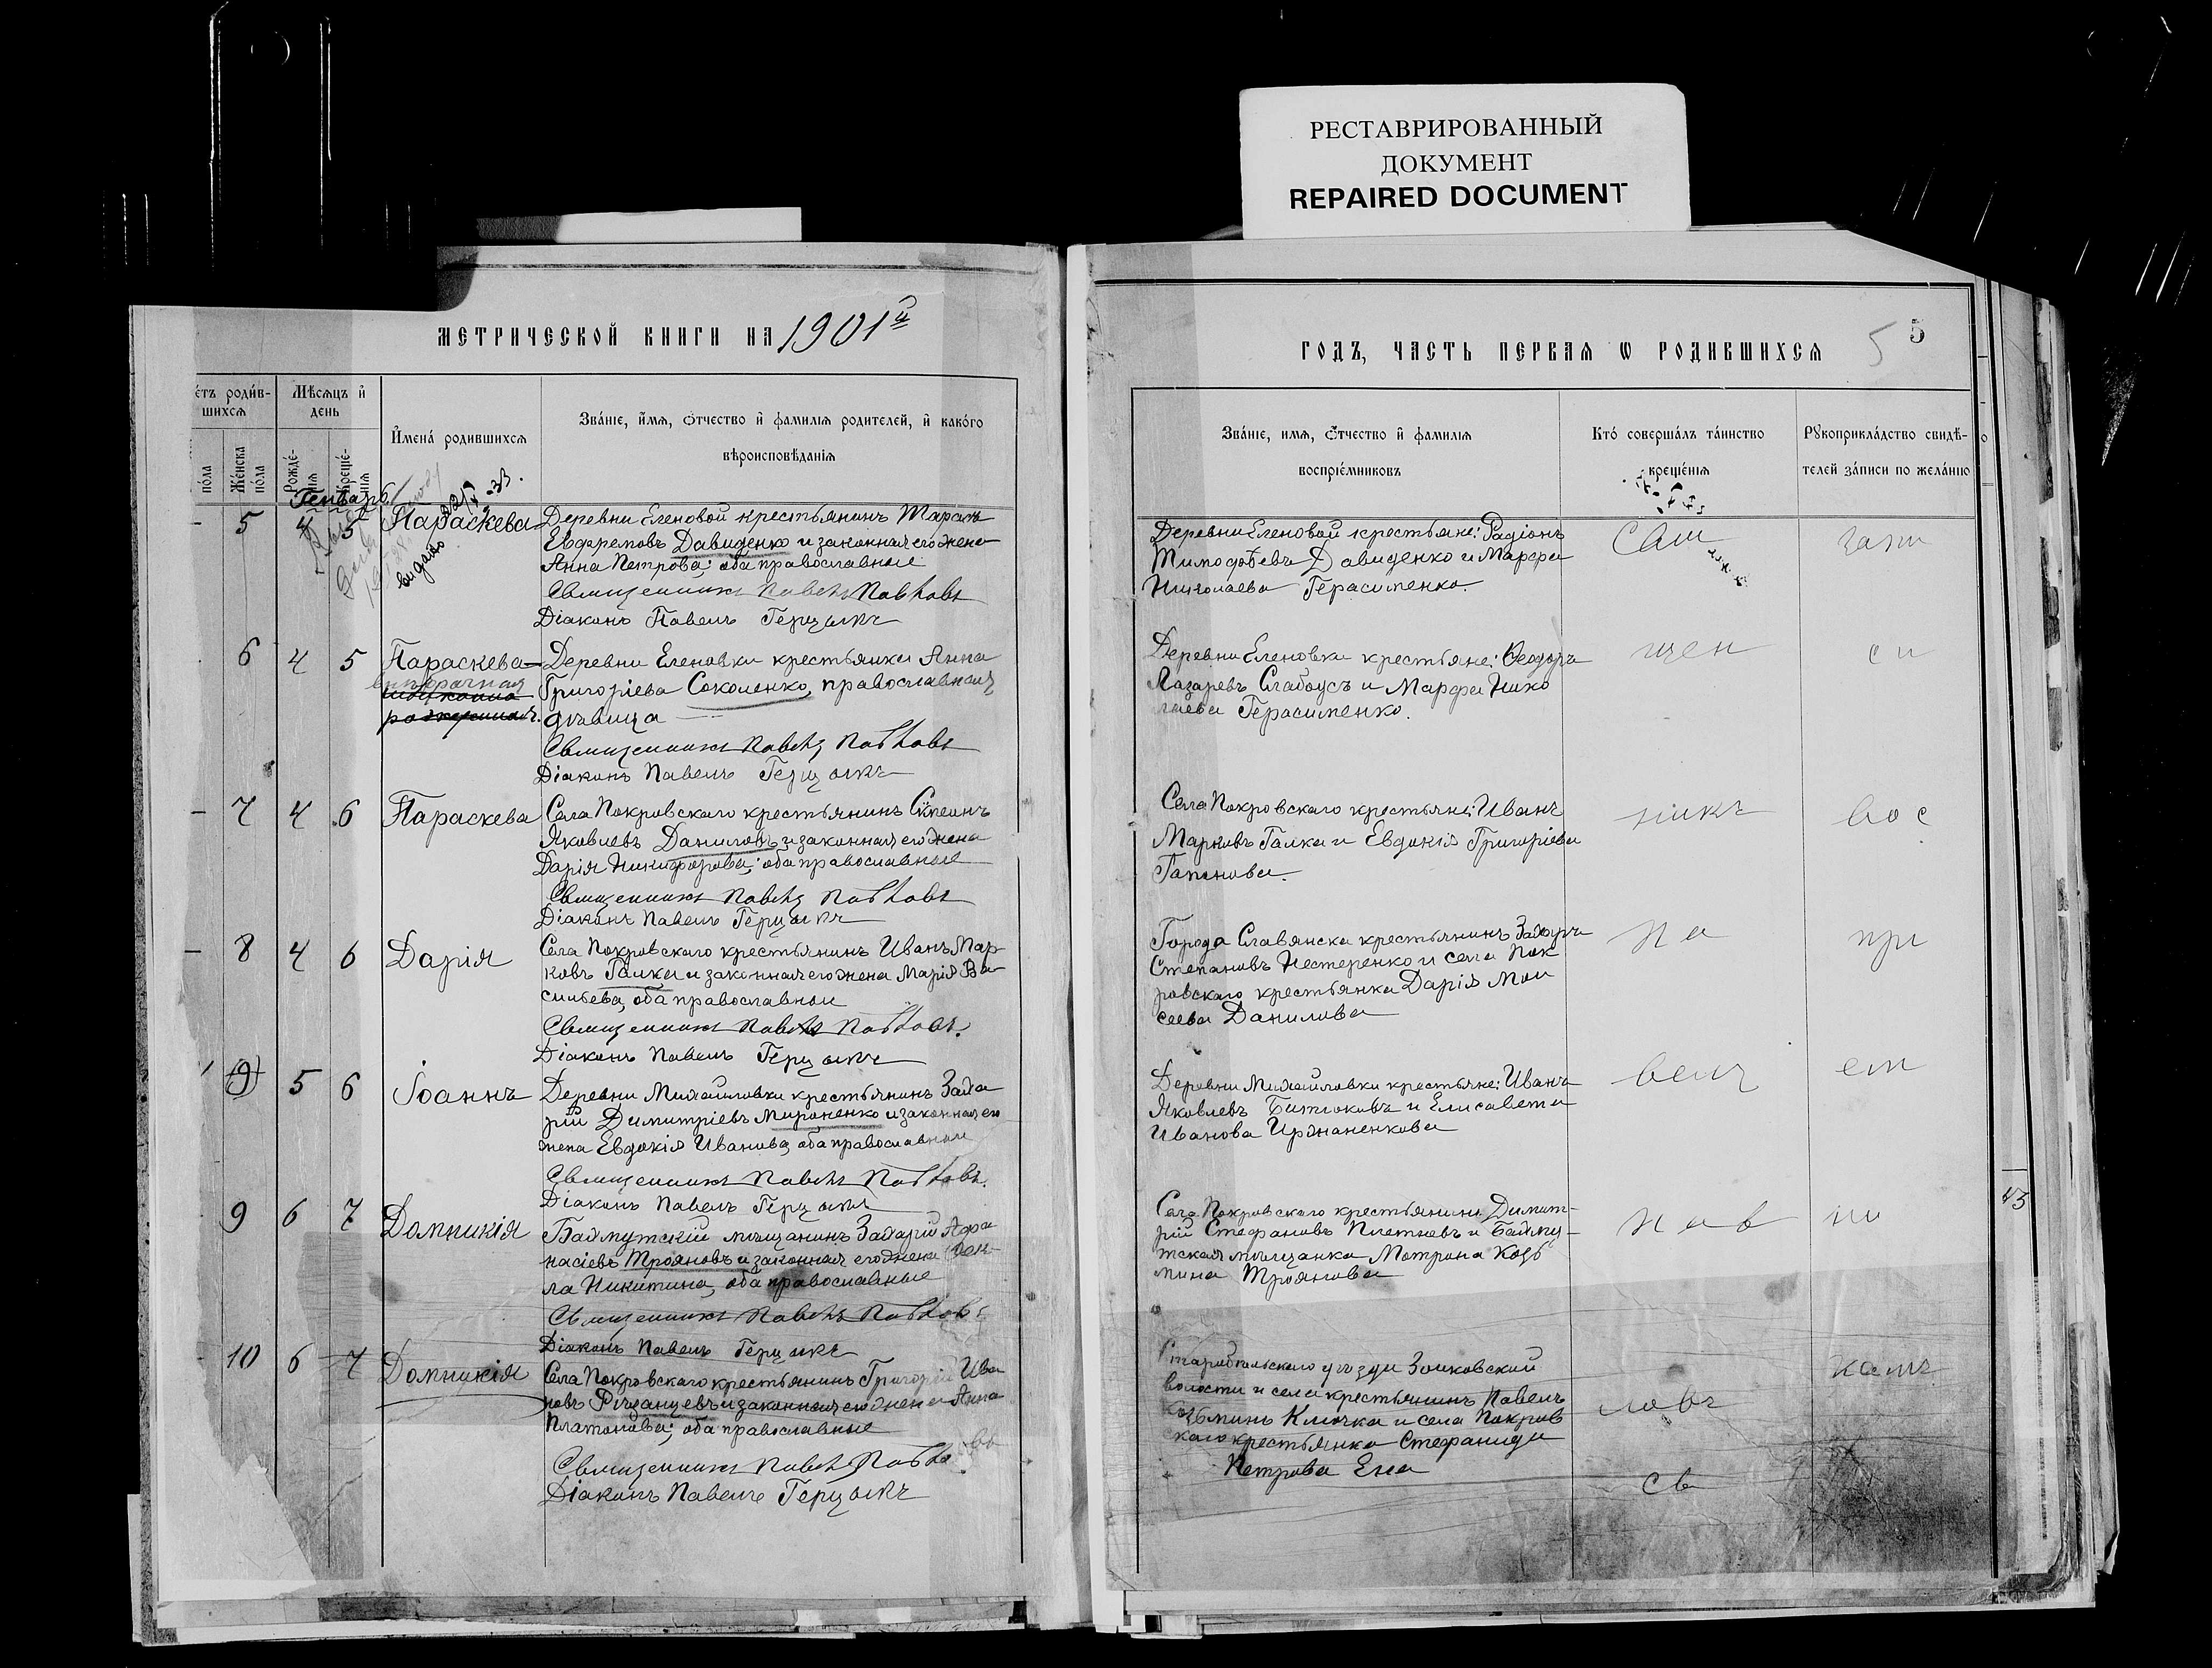 РЕСТАВРИРОВАННЫЙ
ДОКУМЕНТ
REPAIRED DOCUMENT
МЕТРИЧЕСКОЙ КНИГИ НА 1901й
е́тъ роди́в-
шихсѧ
по́ла
Же́нска
по́ла
Мѣсѧцъ и҆
день
Рожде́-
нїѧ
Креще́-
нїѧ
И҆мена́ родившихсѧ
Зва́нїе, и҆́мѧ, ѻ҆́тчество и҆ фамилїѧ родителей, и҆ како́го
вѣроисповѣ́данїѧ
Генварь
5 4 5 Параскева
видано
Деревни Еленовой крестьянинъ Тарасъ
Евфремовъ Давиденко и законная его жена
Анна Петрова; оба православные
Священникъ Павелъ Павловъ
Діаконъ Павелъ Герцыкъ
6 4 5 Параскева
внѣбрачная
Деревни Еленовки крестьянка Анна
Григоріева Соколенко, православная,
дѣвица
Священникъ Павелъ Павловъ
Діаконъ Павелъ Герцыкъ
7 4 6 Параскева
Села Покровскаго крестьянинъ
Яковлевъ Даниловъ и законная его жена
Дарія Никифорова; оба православные
Священникъ Павелъ Павловъ
Діаконъ Павелъ Герцыкъ
8 4 6 Дарія
Села Покровскаго крестьянинъ Иванъ Мар-
ковъ Галка и законная его жена Марія Ва-
сильева, оба православные
Священникъ Павелъ Павловъ.
Діаконъ Павелъ Герцыкъ
9 5 6 Іоаннъ
Деревни Михайловки крестьянинъ Заха-
рій Димитріевъ Мироненко и законная его
жена Евдокія Иванова, оба православные
Священникъ Павелъ Павловъ.
Діаконъ Павелъ Герцыкъ
9 6 7 Домникія
Бахмутскій мѣщанинъ Захарій Афа
насіевъ Трояновъ и законная его жена
ла Никитина, оба православные
Священникъ Павелъ Павловъ
Діаконъ Павелъ Герцыкъ
10 6 7 Домникія
Села Покровскаго крестьянинъ Григорій Ива
новъ Рязанцевъ и законная его жена Анна
Платонова; оба православные
Священникъ Павелъ Павловъ
Діаконъ Павелъ Герцыкъ
ГОДЪ, ЧАСТЬ ПЕРВАѦ Ѡ РОДИВШИХСѦ
5 5
Зва́нїе, имѧ, ѻ҆́тчество и҆ фамилїѧ
воспрїе́мниковъ
Кто́ соверша́лъ та́инство
креще́нїѧ
Рꙋкоприкла́дство свидѣ́-
телей за́писи по жела́нїю
Деревни Еленовой крестьяне: Радіонъ
Тимофѣевъ Давиденко и Марфа
Николаева Герасименко.
Деревни Еленовки крестьяне: Ѳеодоръ
Лазаревъ Слабоусъ и Марфа Нико
лаева Герасименко.
Села Покровскаго крестьяне: Иванъ
Марковъ Галка и Евдокія Григоріева
Гапонова.
Города Славянска крестьянинъ Захаръ
Степановъ Нестеренко и села Пок
ровскаго крестьянка Дарія Мои
сеева Данилова
Деревни Михайловки крестьяне: Иванъ
Яковлевъ Битюковъ и Елисавета
Иванова
Села Покровскаго крестьянинъ Димит-
рій Стефановъ Плетневъ и Бахму-
тская мѣщанка Матрона Козь
мина Троянова
Старобѣльскаго уѣзда
волости и села крестьянинъ Павелъ
Козьминъ Клочка и села Покров
скаго крестьянка Стефанида
Петрова
Свя
щен
никъ
Па
велъ
Пав
ловъ
Св
запи
си
вос
прі
ем
ни
камъ